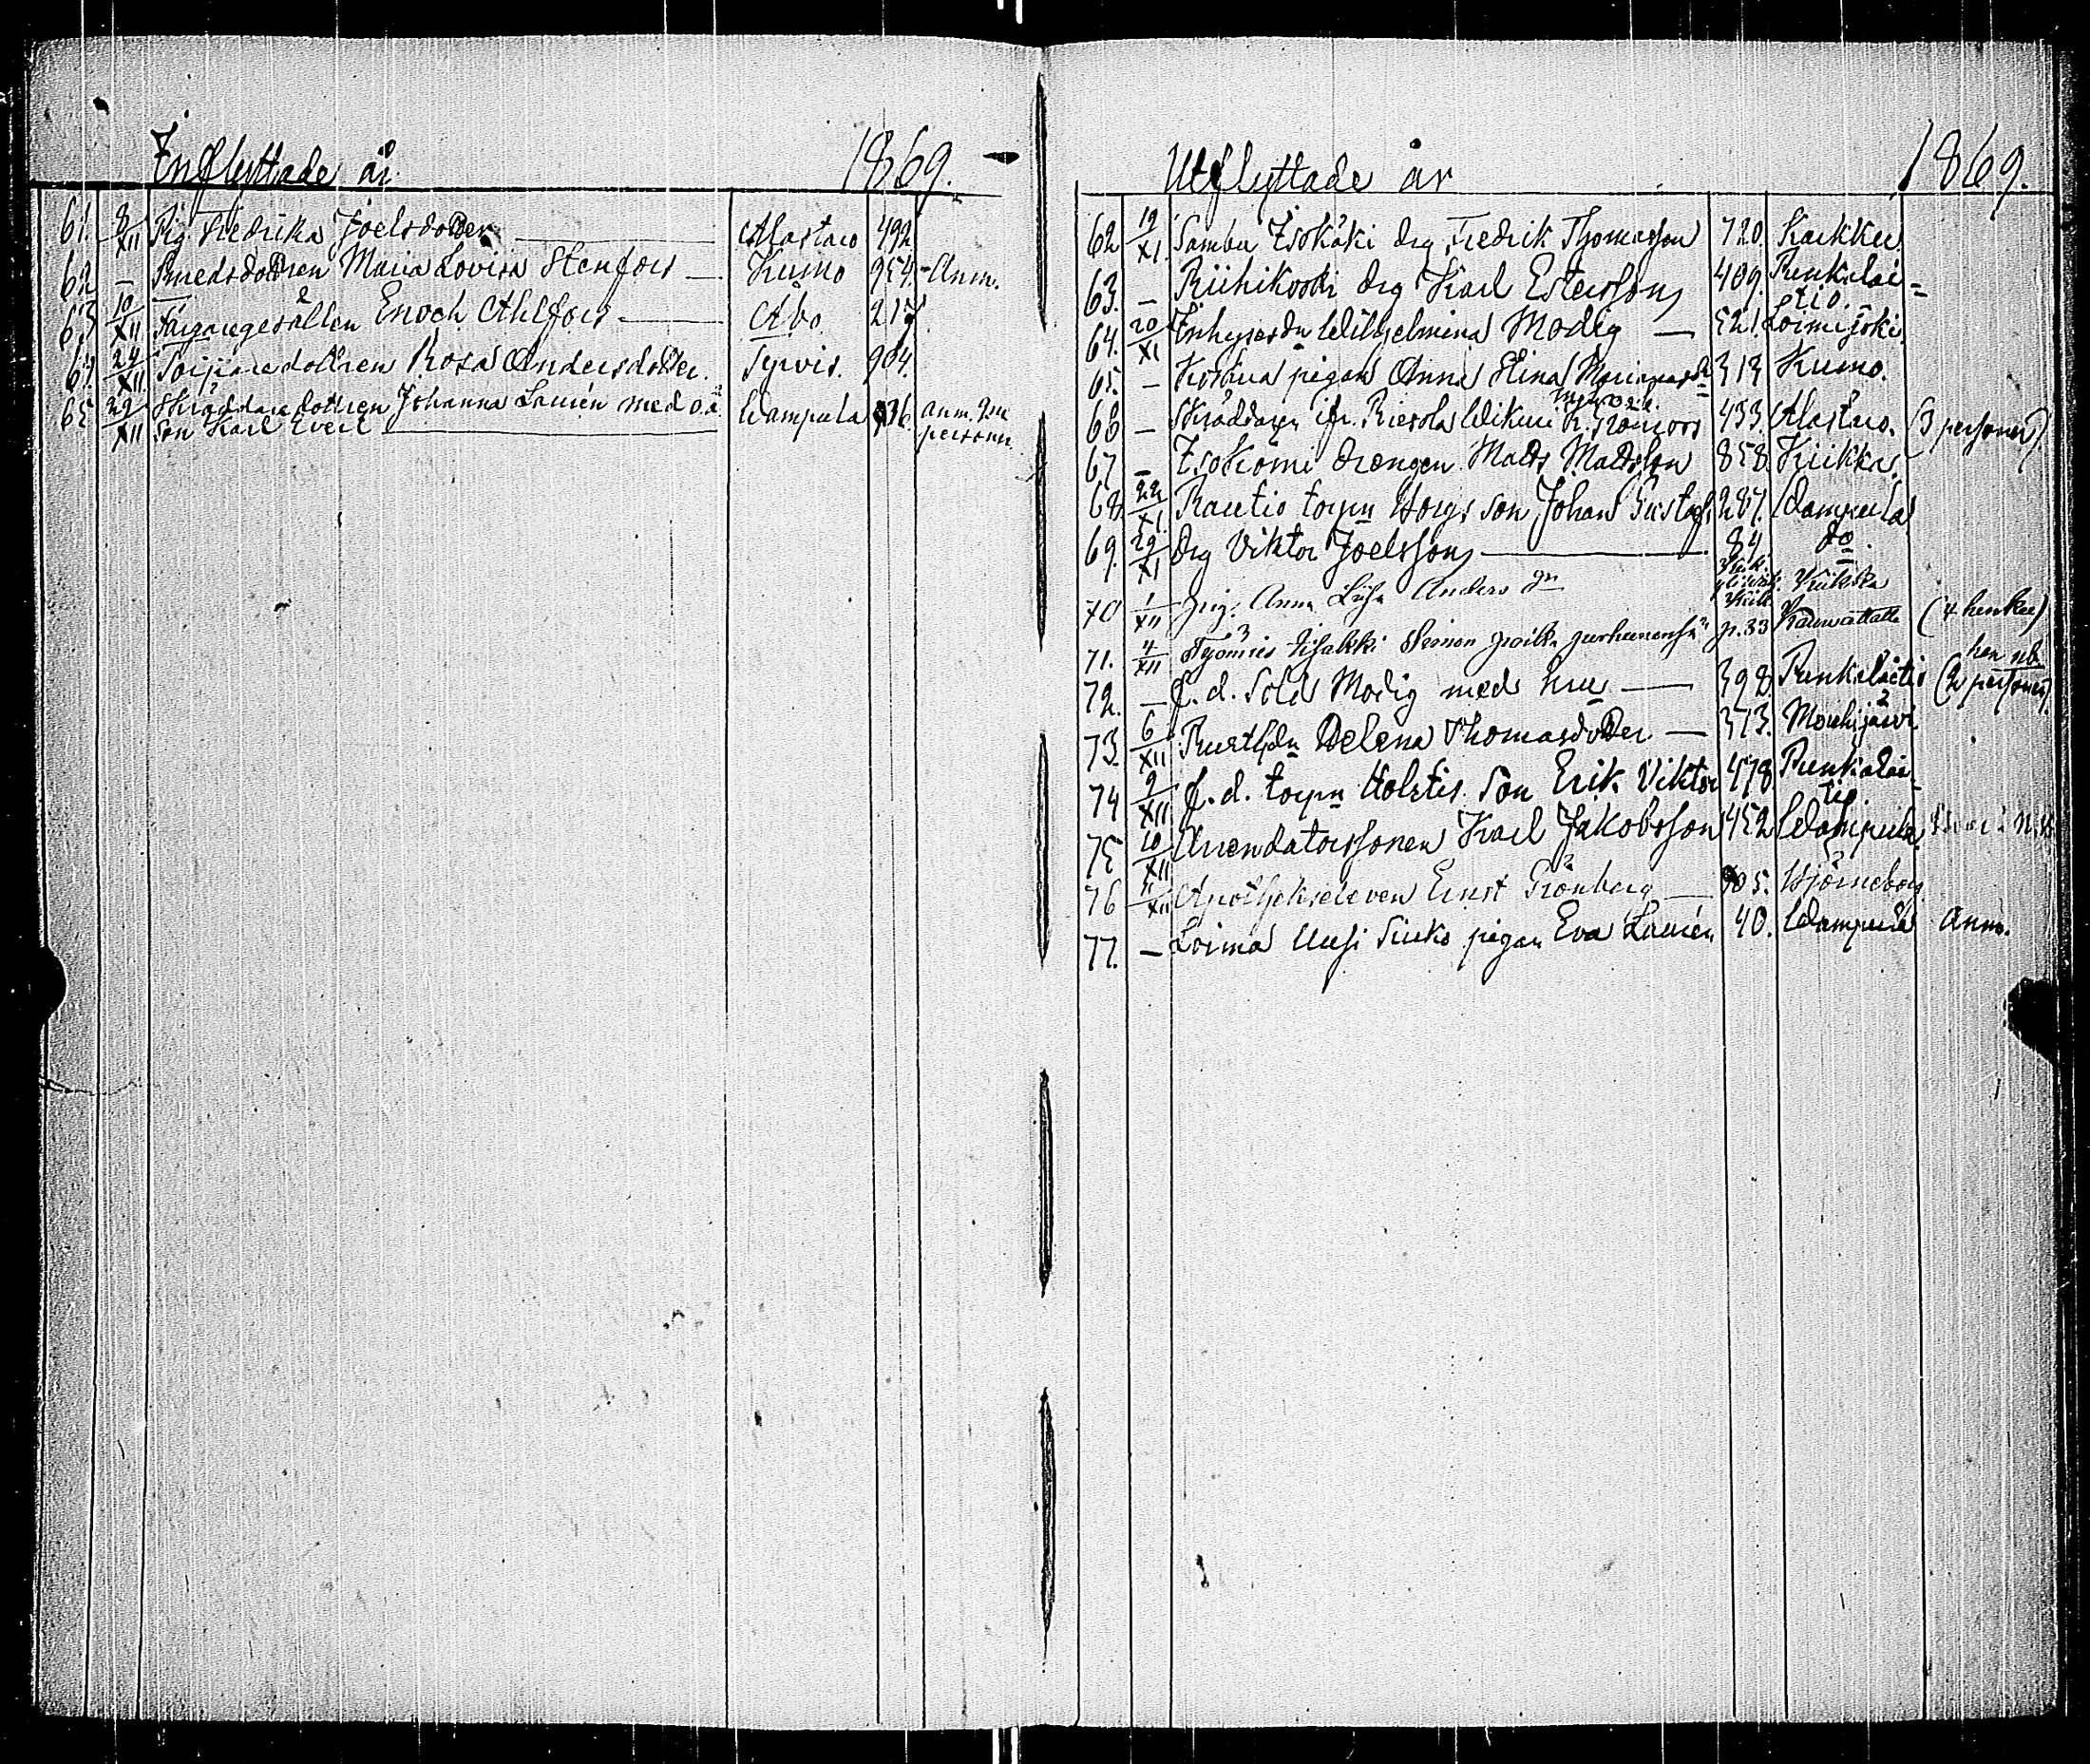 Inflyttade år 1869.
61. 8/XII Pig. Fredrika Joelsdotter Alastaro 492.
62 - Smedsdottren Maria Lovisa Stenfors Kumo 954. Anm.
63 10/XII Färgaregesällen Enoch Ahlfors Åbo. 217
64. 24/XII Torparedottren Rosa Andersdotter. Tyrvis. 904.
65 29/XII Skräddaredottren Johanna Laurén med o.ä. Wampula 136. anm. 2ne
son Karl Evert personer.
Utflyttade år 1869.
62 19/XI. Sambu Isokäki drg Fredrik Thomasson 720. Karkku
63. - Riihikoski drg Karl Estersson 409. Punkalai-
tio.
64. 20/XI Inhysesdn Wilhelmina Modig 521. Loimijoki.
65. - pigan Anna Elina 313 Kumo.
66 - 453. Alastaro. (3 personer)
67 - Isokomi drengen Matts Mattsson 858. Kiikka
68. 22/XI. Rautio torpn son Johan Gustaf 287. Wampula
69. 29/XI Drg Viktor Joelsson 84 do.
70 1/XII pig. Anna Liisa Anders dr Kiikka
71. 4/XII p. 33 (4 henkeä)
72. - f.d. Sold Modig med hu 398. Punkalaitio (2 personer).
73. 6/XII Rusthdn Helena Thomasdotter 373. Mouhijärvi
74 9/XII f.d. torpn Holstis son Erik Viktor 478 Punkalai-
tio.
75 10/XII Arendatorssonen Karl Jakobsson 452 Wampula
76 11/XII Apotekseleven Ernst Grönberg 705. Björneborg
77. - Loima Uusi Sinko pigan Eva Laurén 40. Wampula Anm.